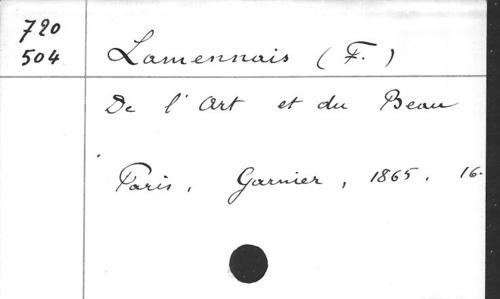 720
504
Lamennais (F.)
De l'Art et du Beau
Paris, Garnier, 1865. 16.